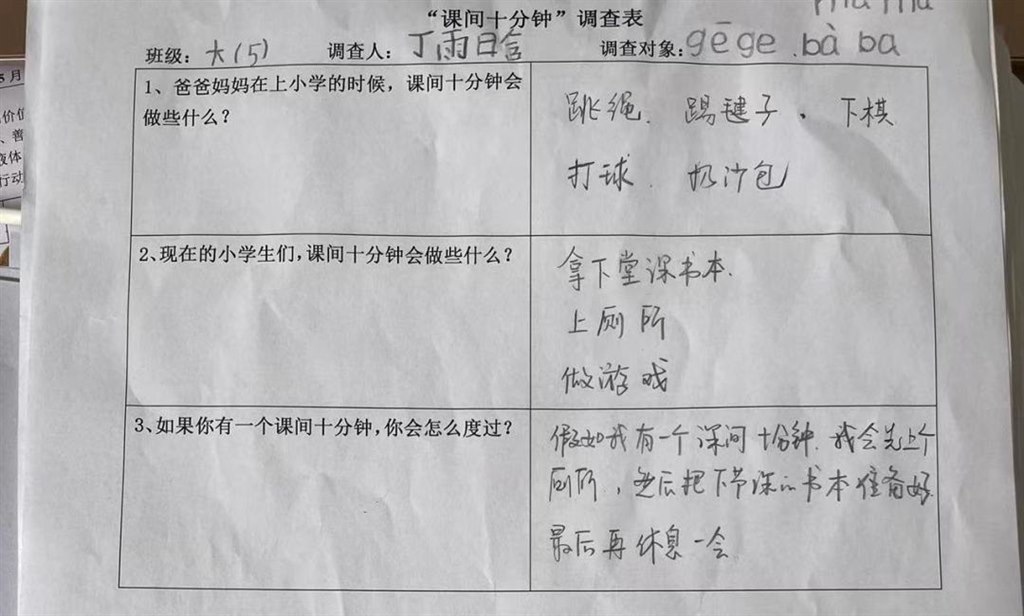 “课间十分钟”调查表
班级：大(5) 调查人：丁雨晗 调查对象：gēge、bà ba
mama
1、爸爸妈妈在上小学的时候，课间十分钟会
做些什么？
跳绳、踢毽子、下棋
打球、扔沙包
2、现在的小学生们，课间十分钟会做些什么？
拿下堂课书本.
上厕所
做游戏
3、如果你有一个课间十分钟，你会怎么度过？
假如我有一个课间十分钟.我会先上个
厕所，然后把下节课的书本准备好
最后再休息一会
5月
价值
、善
液体
行动